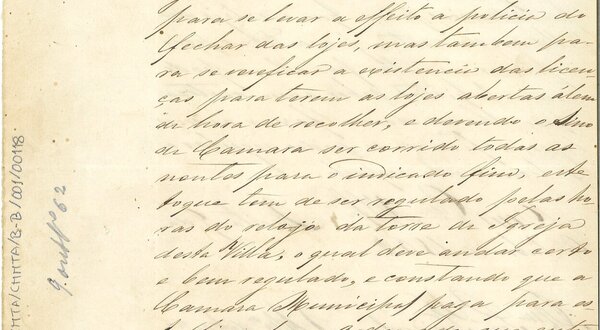 para se levar a effeito a policia do
fechar das lojes, mas tambem pa-
ra se verificar a existencia das licen-
ças para terem as lojes abertas álem
da hora de recolher, e devendo o Sino
da Camara ser corrido todas as
noutes para o indicado fim, este
toque tem de ser regulado pelas ho-
ras do relojo da torre da Igreja
desta Villa, o qual deve andar certo
e bem regulado, e constando que a
Camara Municipal paga para es-
MTA/CMMTA/B-B/001/00118
9. outbro 62